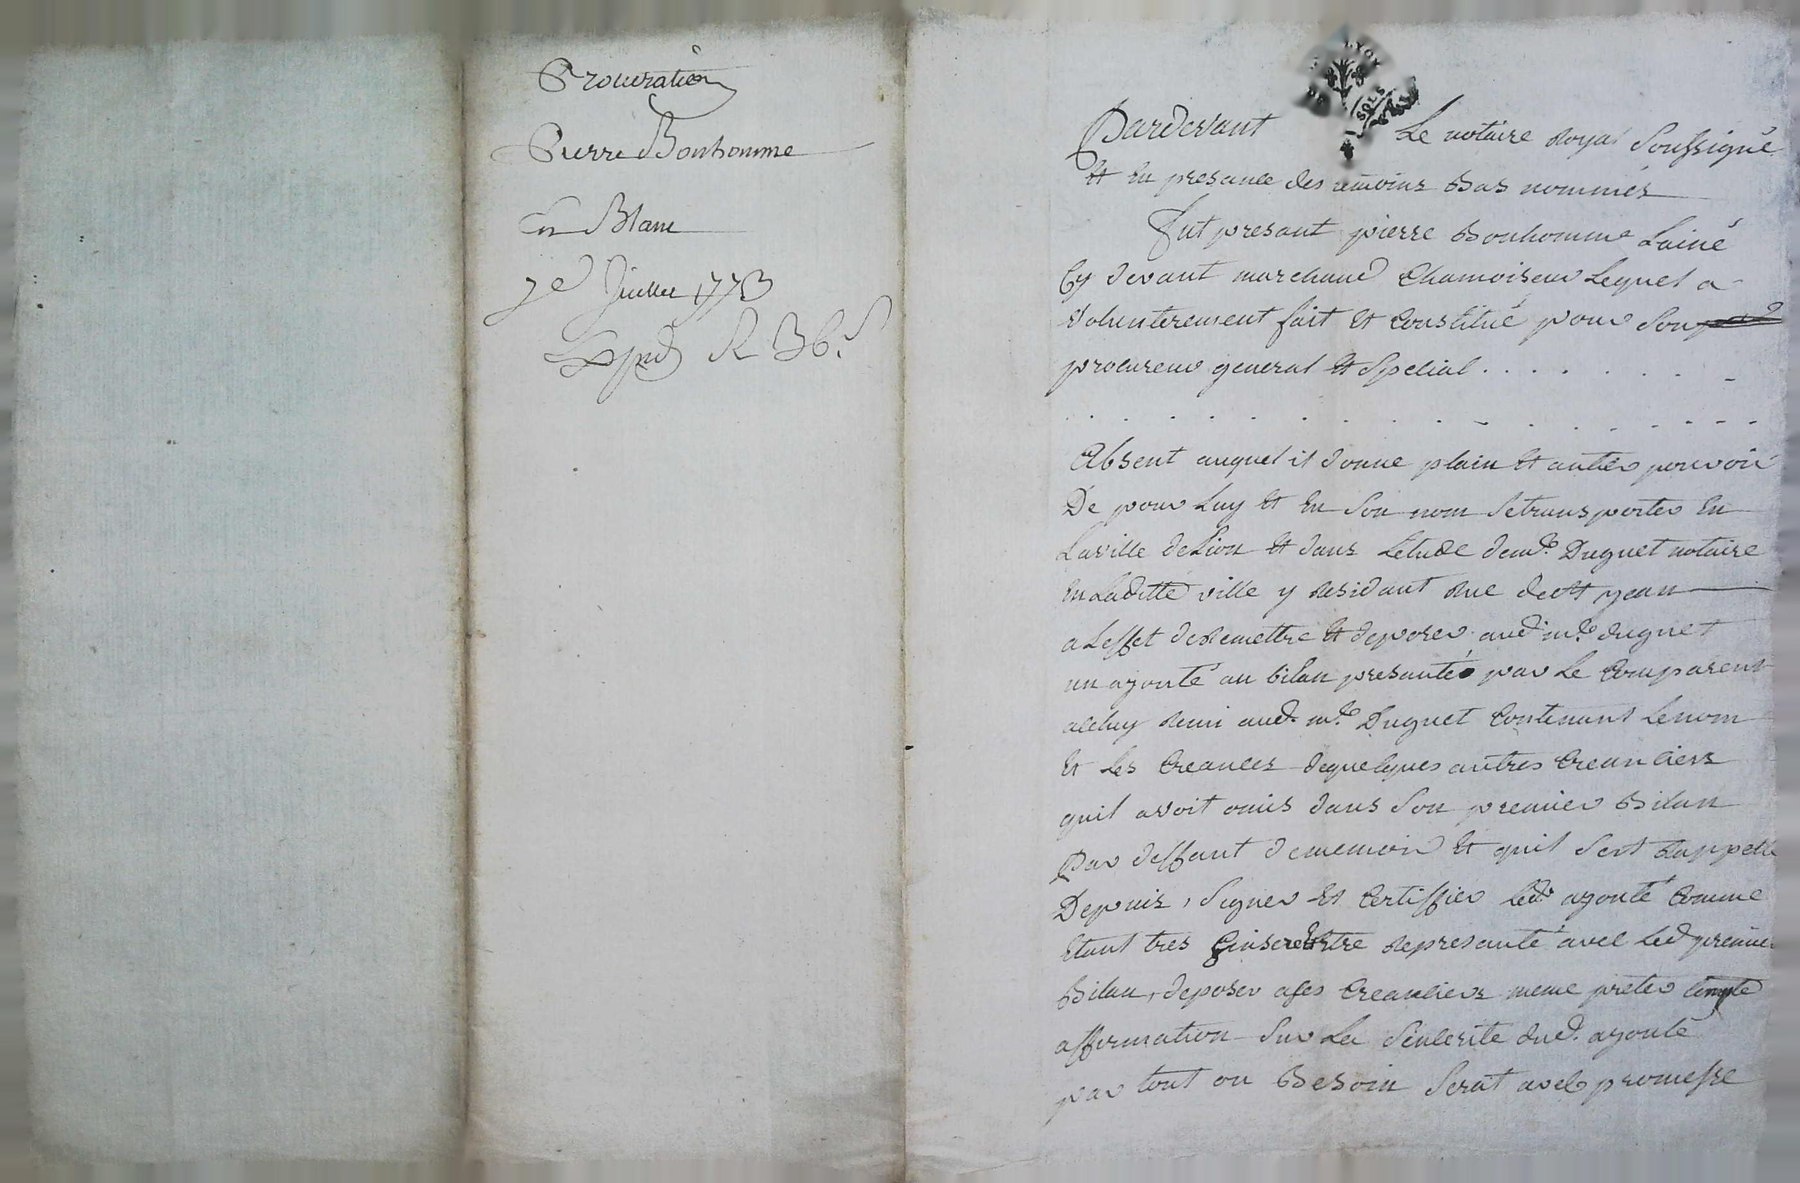 Procuration
Pierre Bonhomme
En Blanc
7e Juillet 1773
Expd R B
LYON
SOLS
Pardevant Le notaire Royal Soussigné
Et En presance des temoins Bas nommés
Fut presant pierre Bonhomme Lainé
Cy devant marchand Chamoiseur Lequel a
Volunterement fait Et Constitué pour Son
procureur general Et Spécial . . . . . . . .
Absent auquel il donne plain Et antier pouvoir
De pour Luy Et En Son nom Se transporter En
La ville de Lion Et dans Létude de me. Duguet notaire
En Laditte ville y Residant Rue de St jean
a Leffet de Remettre Et deposer aud. me. duguet
un ajouté au bilan presanté par Le Comparent
Remi aud. me. Duguet Contenant Le nom
Et Les Creances de quelques autres Creanciers
quil avoit omis dans Son premier Bilan
Par deffaut de memoire Et quil Sest Rappellé
Depuis, Signer Et Certiffier led. ajouté Comme
Etant tres Sincere Etre Represanté avec Led premier
Bilan, deposer a ses Creanciers meme preter
affirmation Sur La Sincerité dud. ajouté
par tout ou Besoin Serat avec promesse